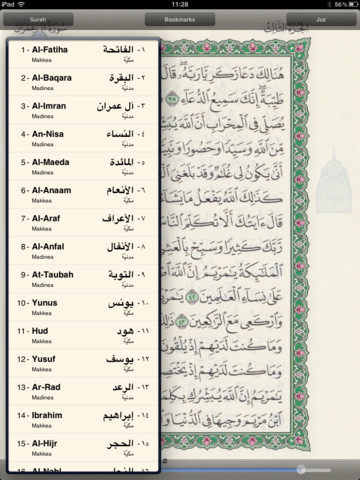 iPad 11:28
Surah Bookmarks Juz
سورة آل عمران الجزء الثالث
1 - Al-Fatiha الفاتحة -١
Makkea مكيّة
2 - Al-Baqara البقرة -٢
Madinea مدنيّة
3 - Al-Imran آل عمران -٣
Madinea مدنيّة
4 - An-Nisa النساء -٤
Madinea مدنيّة
5 - Al-Maeda المائدة -٥
Madinea مدنيّة
6 - Al-Anaam الأنعام -٦
Makkea مكيّة
7 - Al-Araf الأعراف -٧
Makkea مكيّة
8 - Al-Anfal الأنفال -٨
Madinea مدنيّة
9 - At-Taubah التوبة -٩
Madinea مدنيّة
10 - Yunus يونس -١٠
Makkea مكيّة
11 - Hud هود -١١
Makkea مكيّة
12 - Yusuf يوسف -١٢
Makkea مكيّة
13 - Ar-Rad الرعد -١٣
Madinea مدنيّة
14 - Ibrahim إبراهيم -١٤
Makkea مكيّة
15 - Al-Hijr الحجر -١٥
Makkea مكيّة
هُنَالِكَ دَعَا زَكَرِيَّا رَبَّهُ قَالَ
طَيِّبَةً إِنَّكَ سَمِيعُ الدُّعَاءِ ٣٨
يُصَلِّي فِي الْمِحْرَابِ أَنَّ اللَّهَ يُبَشِّرُ
مِّنَ اللَّهِ وَسَيِّدًا وَحَصُورًا وَنَبِيًّا
أَنَّى يَكُونُ لِي غُلَامٌ وَقَدْ بَلَغَنِيَ
كَذَٰلِكَ اللَّهُ يَفْعَلُ مَا يَشَاءُ
قَالَ ءَايَتُكَ أَلَّا تُكَلِّمَ النَّاسَ
رَّبَّكَ كَثِيرًا وَسَبِّحْ بِالْعَشِيِّ
الْمَلَٰئِكَةُ يَٰمَرْيَمُ إِنَّ اللَّهَ
عَلَىٰ نِسَاءِ الْعَٰلَمِينَ ٤٢ يَٰمَرْيَمُ
وَارْكَعِي مَعَ الرَّٰكِعِينَ ٤٣ ذَٰلِكَ
وَمَا كُنتَ لَدَيْهِمْ إِذْ يُلْقُونَ
وَمَا كُنتَ لَدَيْهِمْ إِذْ يَخْتَصِمُونَ
يَٰمَرْيَمُ إِنَّ اللَّهَ يُبَشِّرُكِ بِكَلِمَةٍ
ابْنُ مَرْيَمَ وَجِيهًا فِي الدُّنْيَا وَ